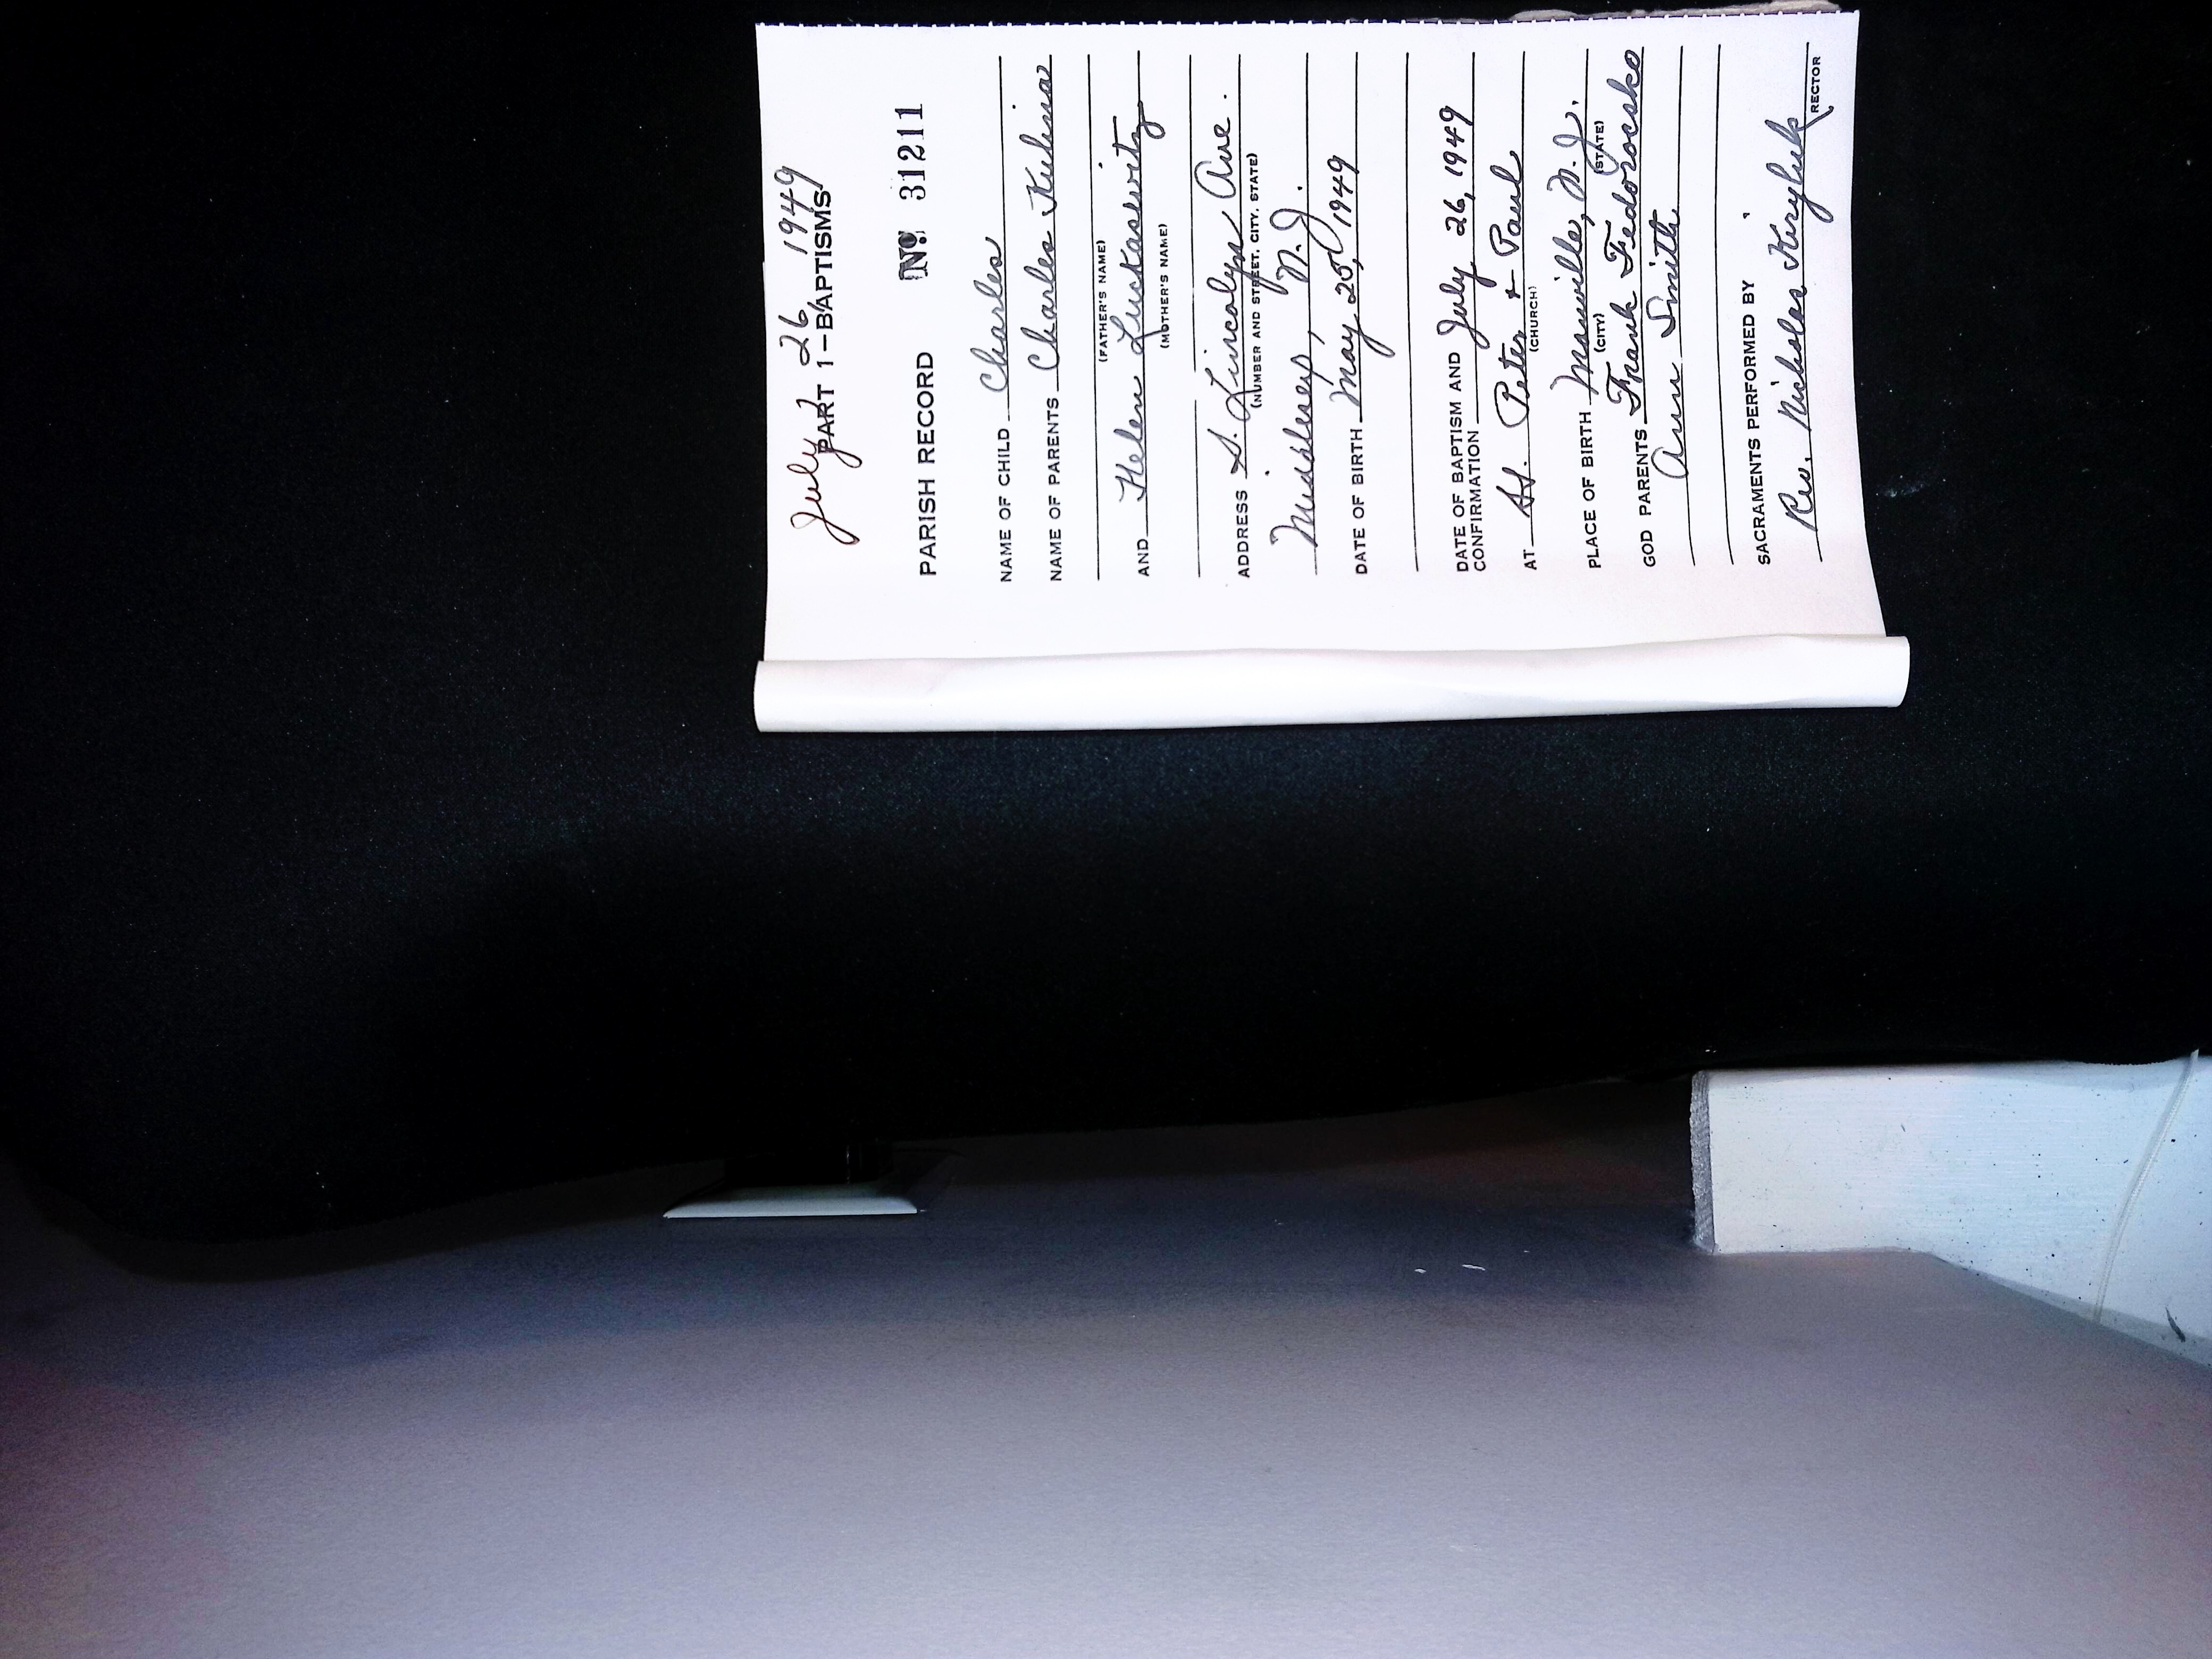 July 26, 1949
PART 1—BAPTISMS
PARISH RECORD No. 31211
NAME OF CHILD Charles
NAME OF PARENTS Charles Kulina
(FATHER'S NAME)
AND Helen Luckasewitz
(MOTHER'S NAME)
ADDRESS S. Lincolyn Ave.
(NUMBER AND STREET, CITY, STATE)
Middlesex, N.J.
DATE OF BIRTH May 25, 1949
DATE OF BAPTISM AND July 26, 1949
CONFIRMATION
AT SS. Peter & Paul
(CHURCH)
PLACE OF BIRTH Manville, N.J.
(CITY) (STATE)
GOD PARENTS Frank Fedorocsko
Ann Smith
SACRAMENTS PERFORMED BY
Rev. Nicholas Kiryluk
RECTOR